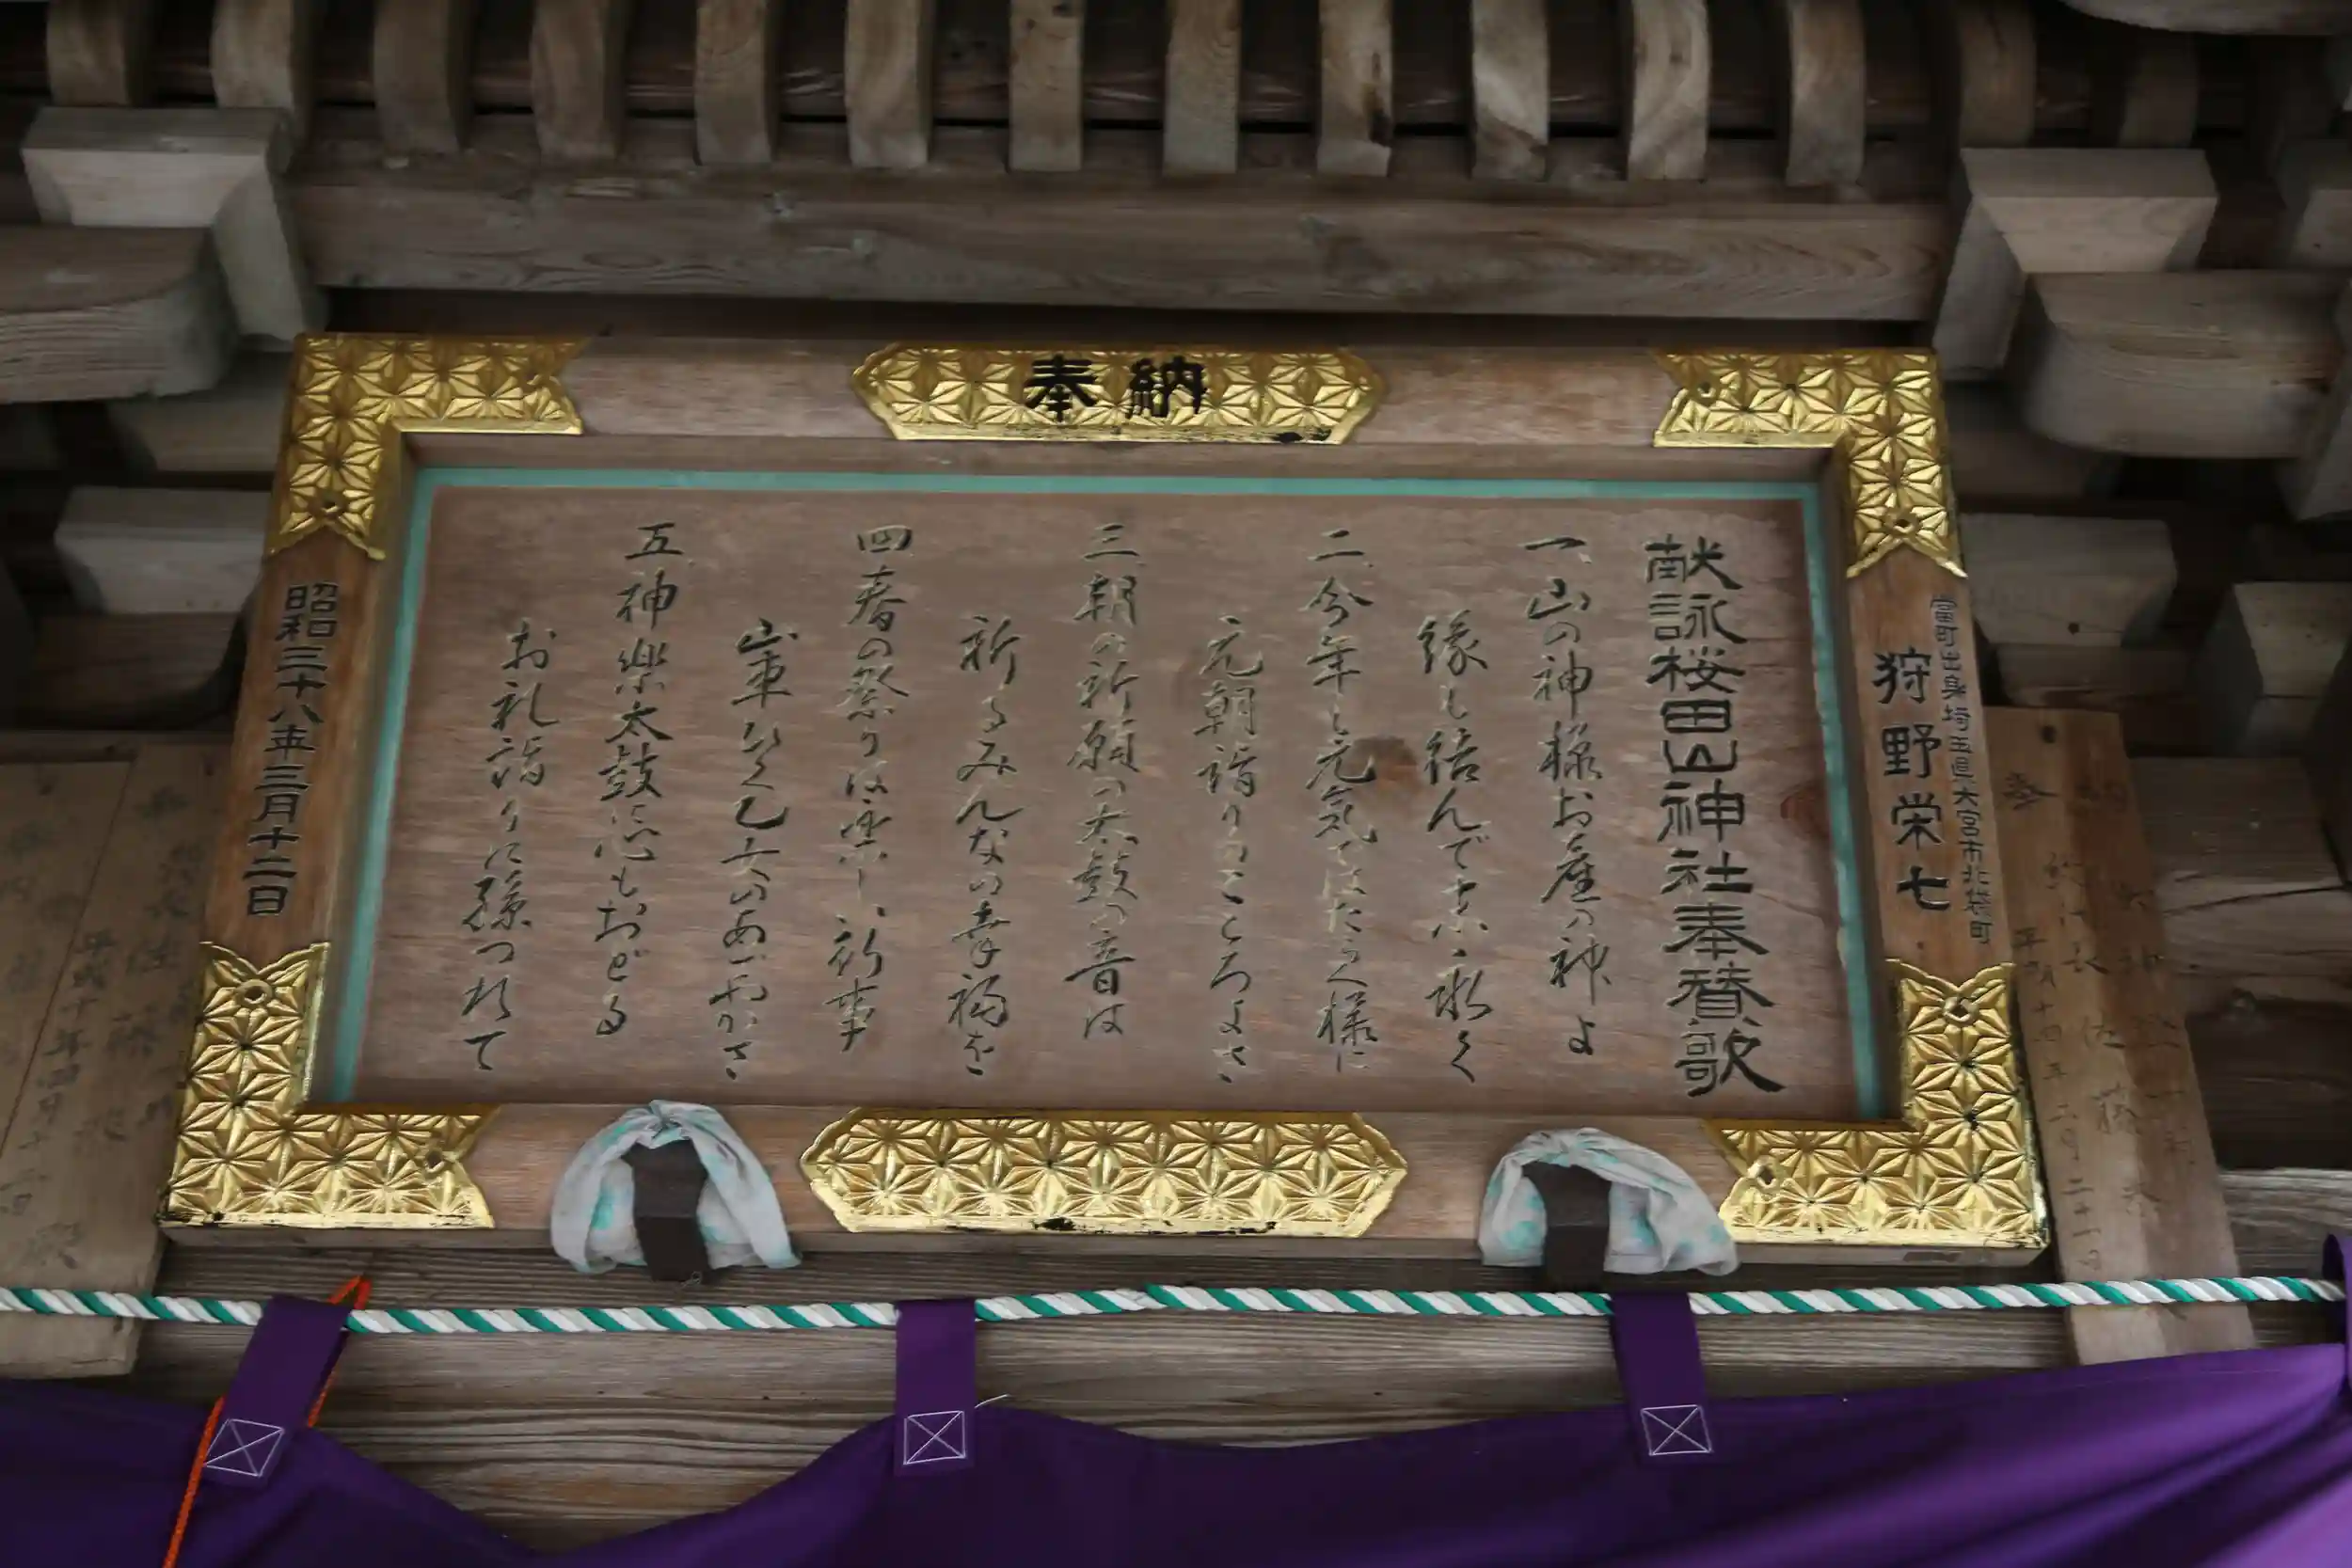 奉納
當町出身埼玉県大宮市北袋町
狩野栄七
献詠桜田山神社奉賛歌
一、山の神様お産の神よ
縁も結んで末永く
二、今年も元気ではたらく様に
元朝詣りのこころよさ
三、朝の祈願の太鼓の音は
祈るみんなの幸福を
四、春の祭りは楽しい行事
山車ひく乙女のあでやかさ
五、神楽太鼓に心もおどる
お礼詣りに孫つれて
昭和三十八年三月十二日